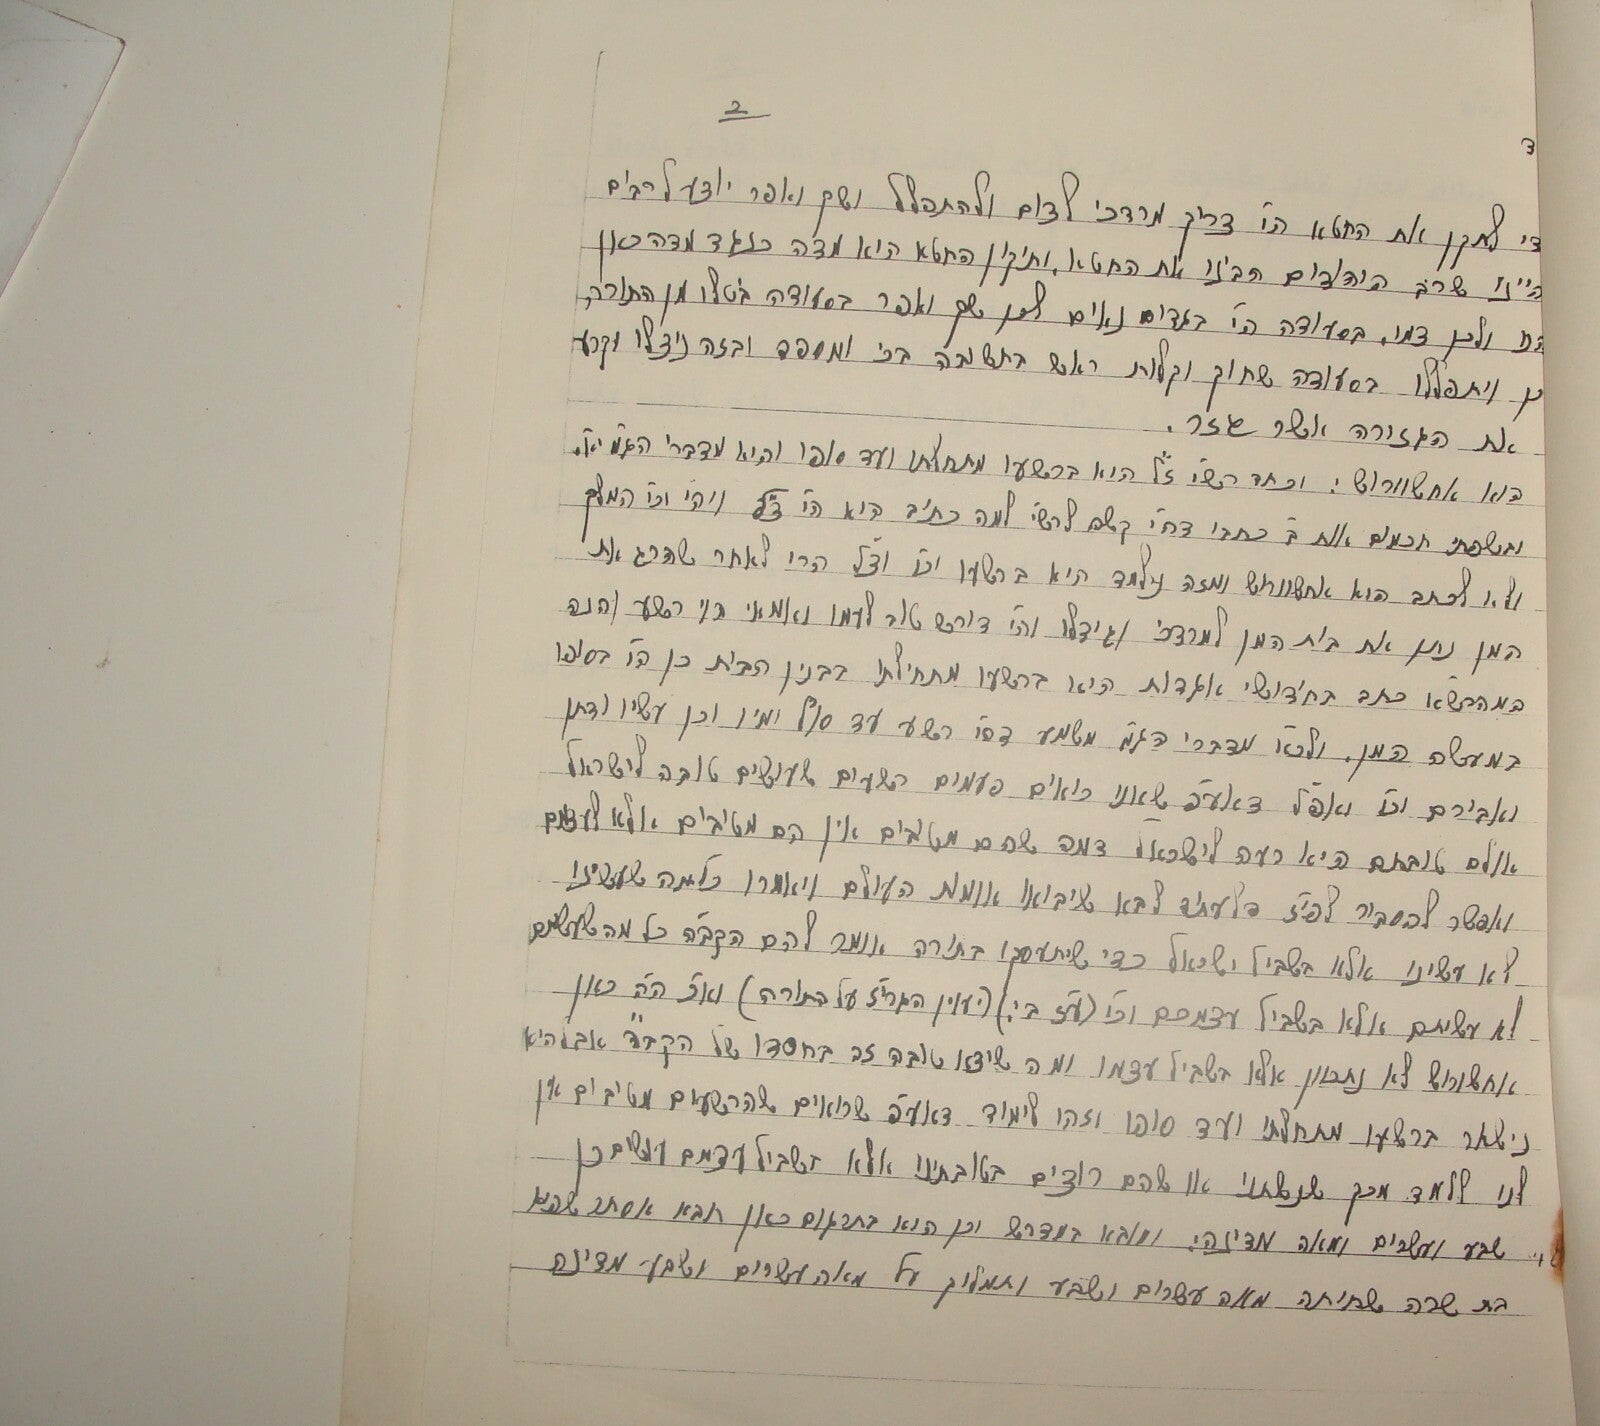 ב
ד
כדי לתקן את החטא הי׳ צריך מרדכי לצום ולהתפלל ושק ואפר יוצע לרבים
היינו שרב היהודים הבינו את החטא, ותיקון החטא היא מדה כנגד מדה כאן
ולכן צמו, בסעודה הי׳ בגדים נאים לכן שק ואפר בסעודה בטלו מן התורה
כן ויתפללו בסעודה שחוק וקלות ראש בתשובה בכי ומספד ובזה ניצלו וקרע
את הגזורה אשר גזר.
הוא אחשורוש: וכתב רש״י ז״ל הוא ברשעו מתחלתו ועד סופו והוא מדברי הגמ׳
ובשפתי חכמים אות ב׳ כתבו דהי׳ קשה לרש״י למה כתיב הוא הי׳ צ״ל ויהי וכו׳ המלך
ולא לכתב הוא אחשורוש ומזה נילמד הוא ברשעו וכו׳ וצ״ל הרי לאחר שהרג את
המן נתן את בית המן למרדכי וגידלו והי׳ דורש טוב לעמו ואמאי הוי רשע והנה
במהרש״א כתב בחידושי אגדות הוא ברשעו מתחילתו בבנין הבית כן הי׳ בסופו
במעשה המן, ולכא׳ מדברי הגמ׳ משמע דהי׳ רשע עד סוף ימיו וכן עשיו ודתן
ואבירם וכו׳ ואפ״ל דאע״פ שאנו רואים פעמים רשעים שעושים טובה לישראל
אולם טובתם היא רעה לישראל דמה שהם מטיבים אין הם מטיבים אלא לעצמם
ואפשר להסביר לפ״ז דלעתיד לבא שיבואו אומות העולם ויאמרו כל מה שעשינו
לא עשינו אלא בשביל ישראל כדי שיתעסקו בתורה אומר להם הקב״ה כל מה שעשיתם
לא עשיתם אלא בשביל עצמכם וכו׳ (ע״ז ב׳:) (יעוין הגרי״ז על התורה) וא״כ ה״ה כאן
אחשורוש לא נתכוון אלא בשביל עצמו ומה שיצא טובה זה בחסדו של הקב״ה אבל היא
נישאר ברשעו מתחלתו ועד סופו וזהו לימוד דאע״פ שרואים שהרשעים מטיבים אין
לנו ללמד מכך שנשתנו או שהם רוצים בטובתינו אלא בשביל עצמם עושים כן
שבע ועשרים ומאה מדינה: ומובא במדרש וכן הוא בתרגום כאן תבא אסתר שהיא
בת שרה שחיתה מאה עשרים ושבע ותמלוך על מאה עשרים ושבע מדינה